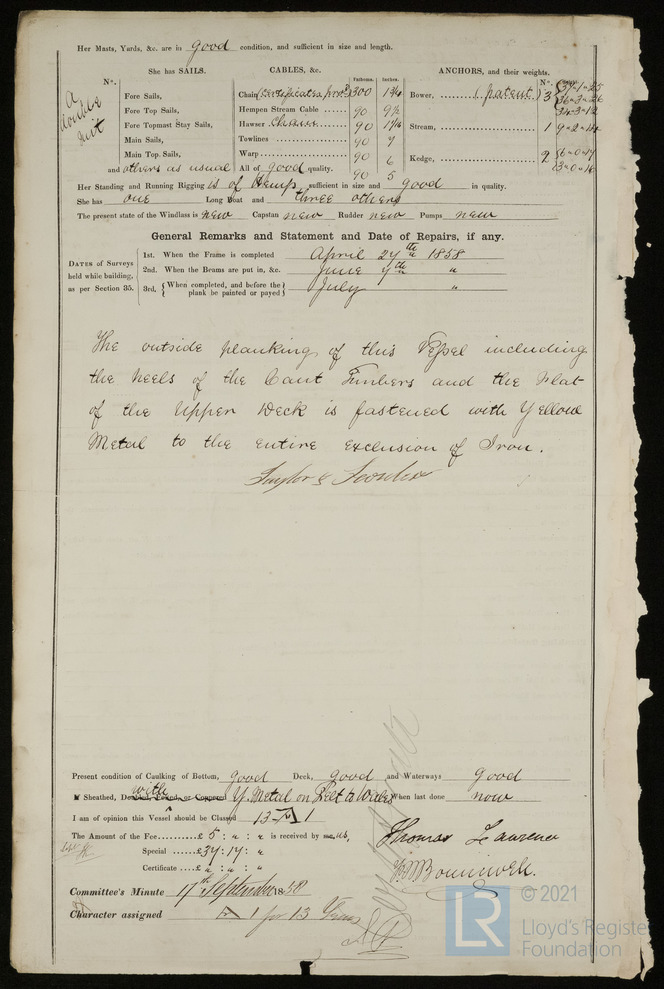 Her Masts, Yards, &c. are in good condition, and sufficient in size and length.
She has SAILS. CABLES, &c. Fathoms. Inches. ANCHORS, and their weights.
No. No.
A double suit
Fore Sails, Chain 300 1 3/4 Bower, (1 patent) 3
Fore Top Sails, Hempen Stream Cable 90 9 1/2
Fore Topmast Stay Sails, Hawser Chain 90 Stream, 1
Main Sails, Towlines 90 9
Main Top Sails, Warp 90 6 Kedge, 2
and others as usual All of good quality. 90 5
Her Standing and Running Rigging is of Hemp sufficient in size and good in quality.
She has one Long Boat and three others
The present state of the Windlass is new Capstan new Rudder new Pumps new
General Remarks and Statement and Date of Repairs, if any.
DATES of Surveys held while building, as per Section 35.
1st. When the Frame is completed April 27th 1858
2nd. When the Beams are put in, &c. June 7th "
3rd. {When completed, and before the plank be painted or payed} July "
The outside planking of this Vessel including
the heels of the Cant Timbers and the Flat
of the Upper Deck is fastened with Yellow
Metal to the entire exclusion of Iron.
Present condition of Caulking of Bottom, good Deck, good and Waterways good
Sheathed, with Y. Metal on Felt to Wales When last done now
I am of opinion this Vessel should be Classed 13 A 1
The Amount of the Fee £5 : " : " is received by me us,
Special
Certificate .... £ " : " : "
Thomas Lawrence
Committee's Minute 17th September 1858
Character assigned A 1 for 13 Years
LR
© 2021
Lloyd's Register
Foundation